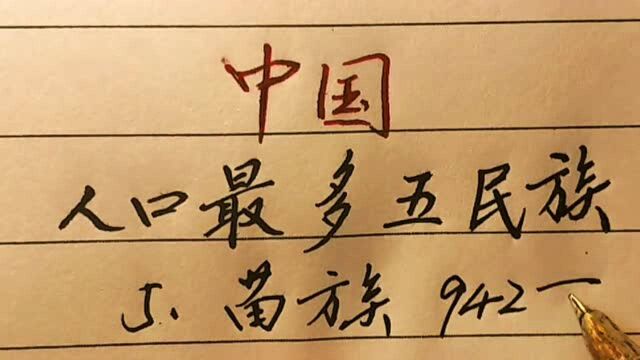 中国
人口最多五民族
5. 苗族 942一